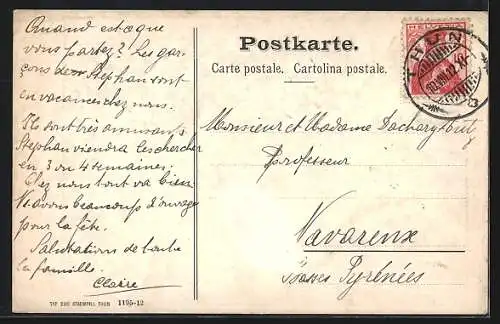 Quand est-ce que
vous partez? Les gar-
çons de Stephan sont
en vacances chez nous.
Ils sont très amusants
Stephan viendra les chercher
en 3 ou 4 semaines.
Chez nous tout va bien
Nous avons beaucoup d'ouvrage
pour la fête.
Salutations de toute
la famille.
Claire
Postkarte.
Carte postale. Cartolina postale.
HELVETIA
THUN
Monsieur et Madame
Professeur
Navarenx
Basses Pyrénées
1195-12